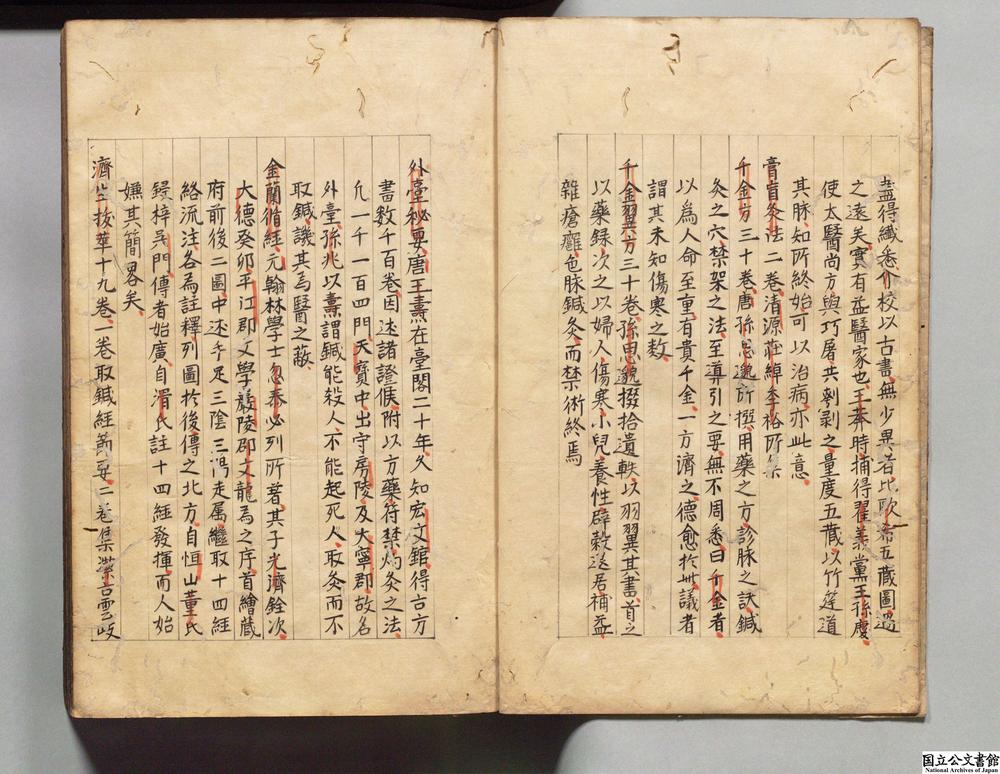 盡得纖悉介校以古書無少異若比歐希五藏圖過
之遠矣實有益醫家也王莽時捕得翟義黨王孫慶
使太醫尚方與巧屠共刳剥之量度五藏以竹筳道
其脉知所終始可以治病亦此意
膏盲灸法二卷清源莊綽季裕所集
千金方三十卷唐孫思邈所撰用藥之方診脉之訣鍼
灸之穴禁架之法至導引之要無不周悉曰千金者
以為人命至重有貴千金一方濟之德愈於此議者
謂其未知傷寒之數
千金翼方三十卷孫思邈掇拾遺軼以羽翼其書首之
以藥録次之以婦人傷寒小兒養性辟穀退居補益
雜瘡癰色脉鍼灸而禁術終焉
外臺秘要唐王燾在臺閣二十年久知宏文舘得古方
書數千百卷因述諸證候附以方藥符禁灼灸之法
凢一千一百四門天寳中出守房陵及大寧郡故名
外臺孫兆以燾謂鍼能殺人不能起死人取灸而不
取鍼譏其為醫之蔽
金蘭循經元翰林學士忽泰必列所著其子光濟銓次
大德癸卯平江郡文學巖陵邵文龍為之序首繪藏
府前後二圖中述手足三陰三陽走属繼取十四經
絡流注各為註釋列圖於後傳之北方自恒山董氏
鋟梓吴門傳者始廣自滑氏註十四經發揮而人始
嫌其簡畧矣
濟生拔萃十九卷一卷取鍼經莭要二卷集潔古雲岐
国立公文書館
National Archives of Japan